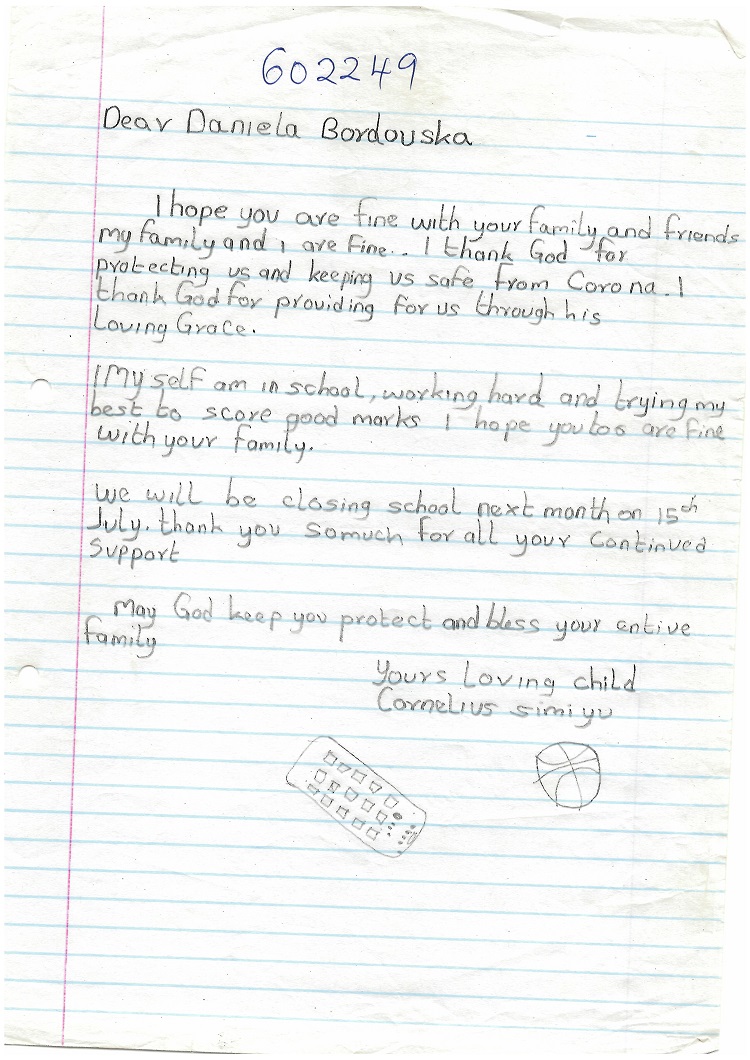 602249
Dear Daniela Bordouska
I hope you are fine with your family and friends
my family and I are fine.. I thank God for
protecting us and keeping us safe from Corona. I
thank God for providing for us through his
Loving Grace.
I My self am in school, working hard and trying my
best to score good marks I hope you too are fine
with your family.
We will be closing school next month on 15th
July. thank you somuch for all your continued
Support
May God keep you protect and bless your entire
family
Yours Loving child
Cornelius simiyu